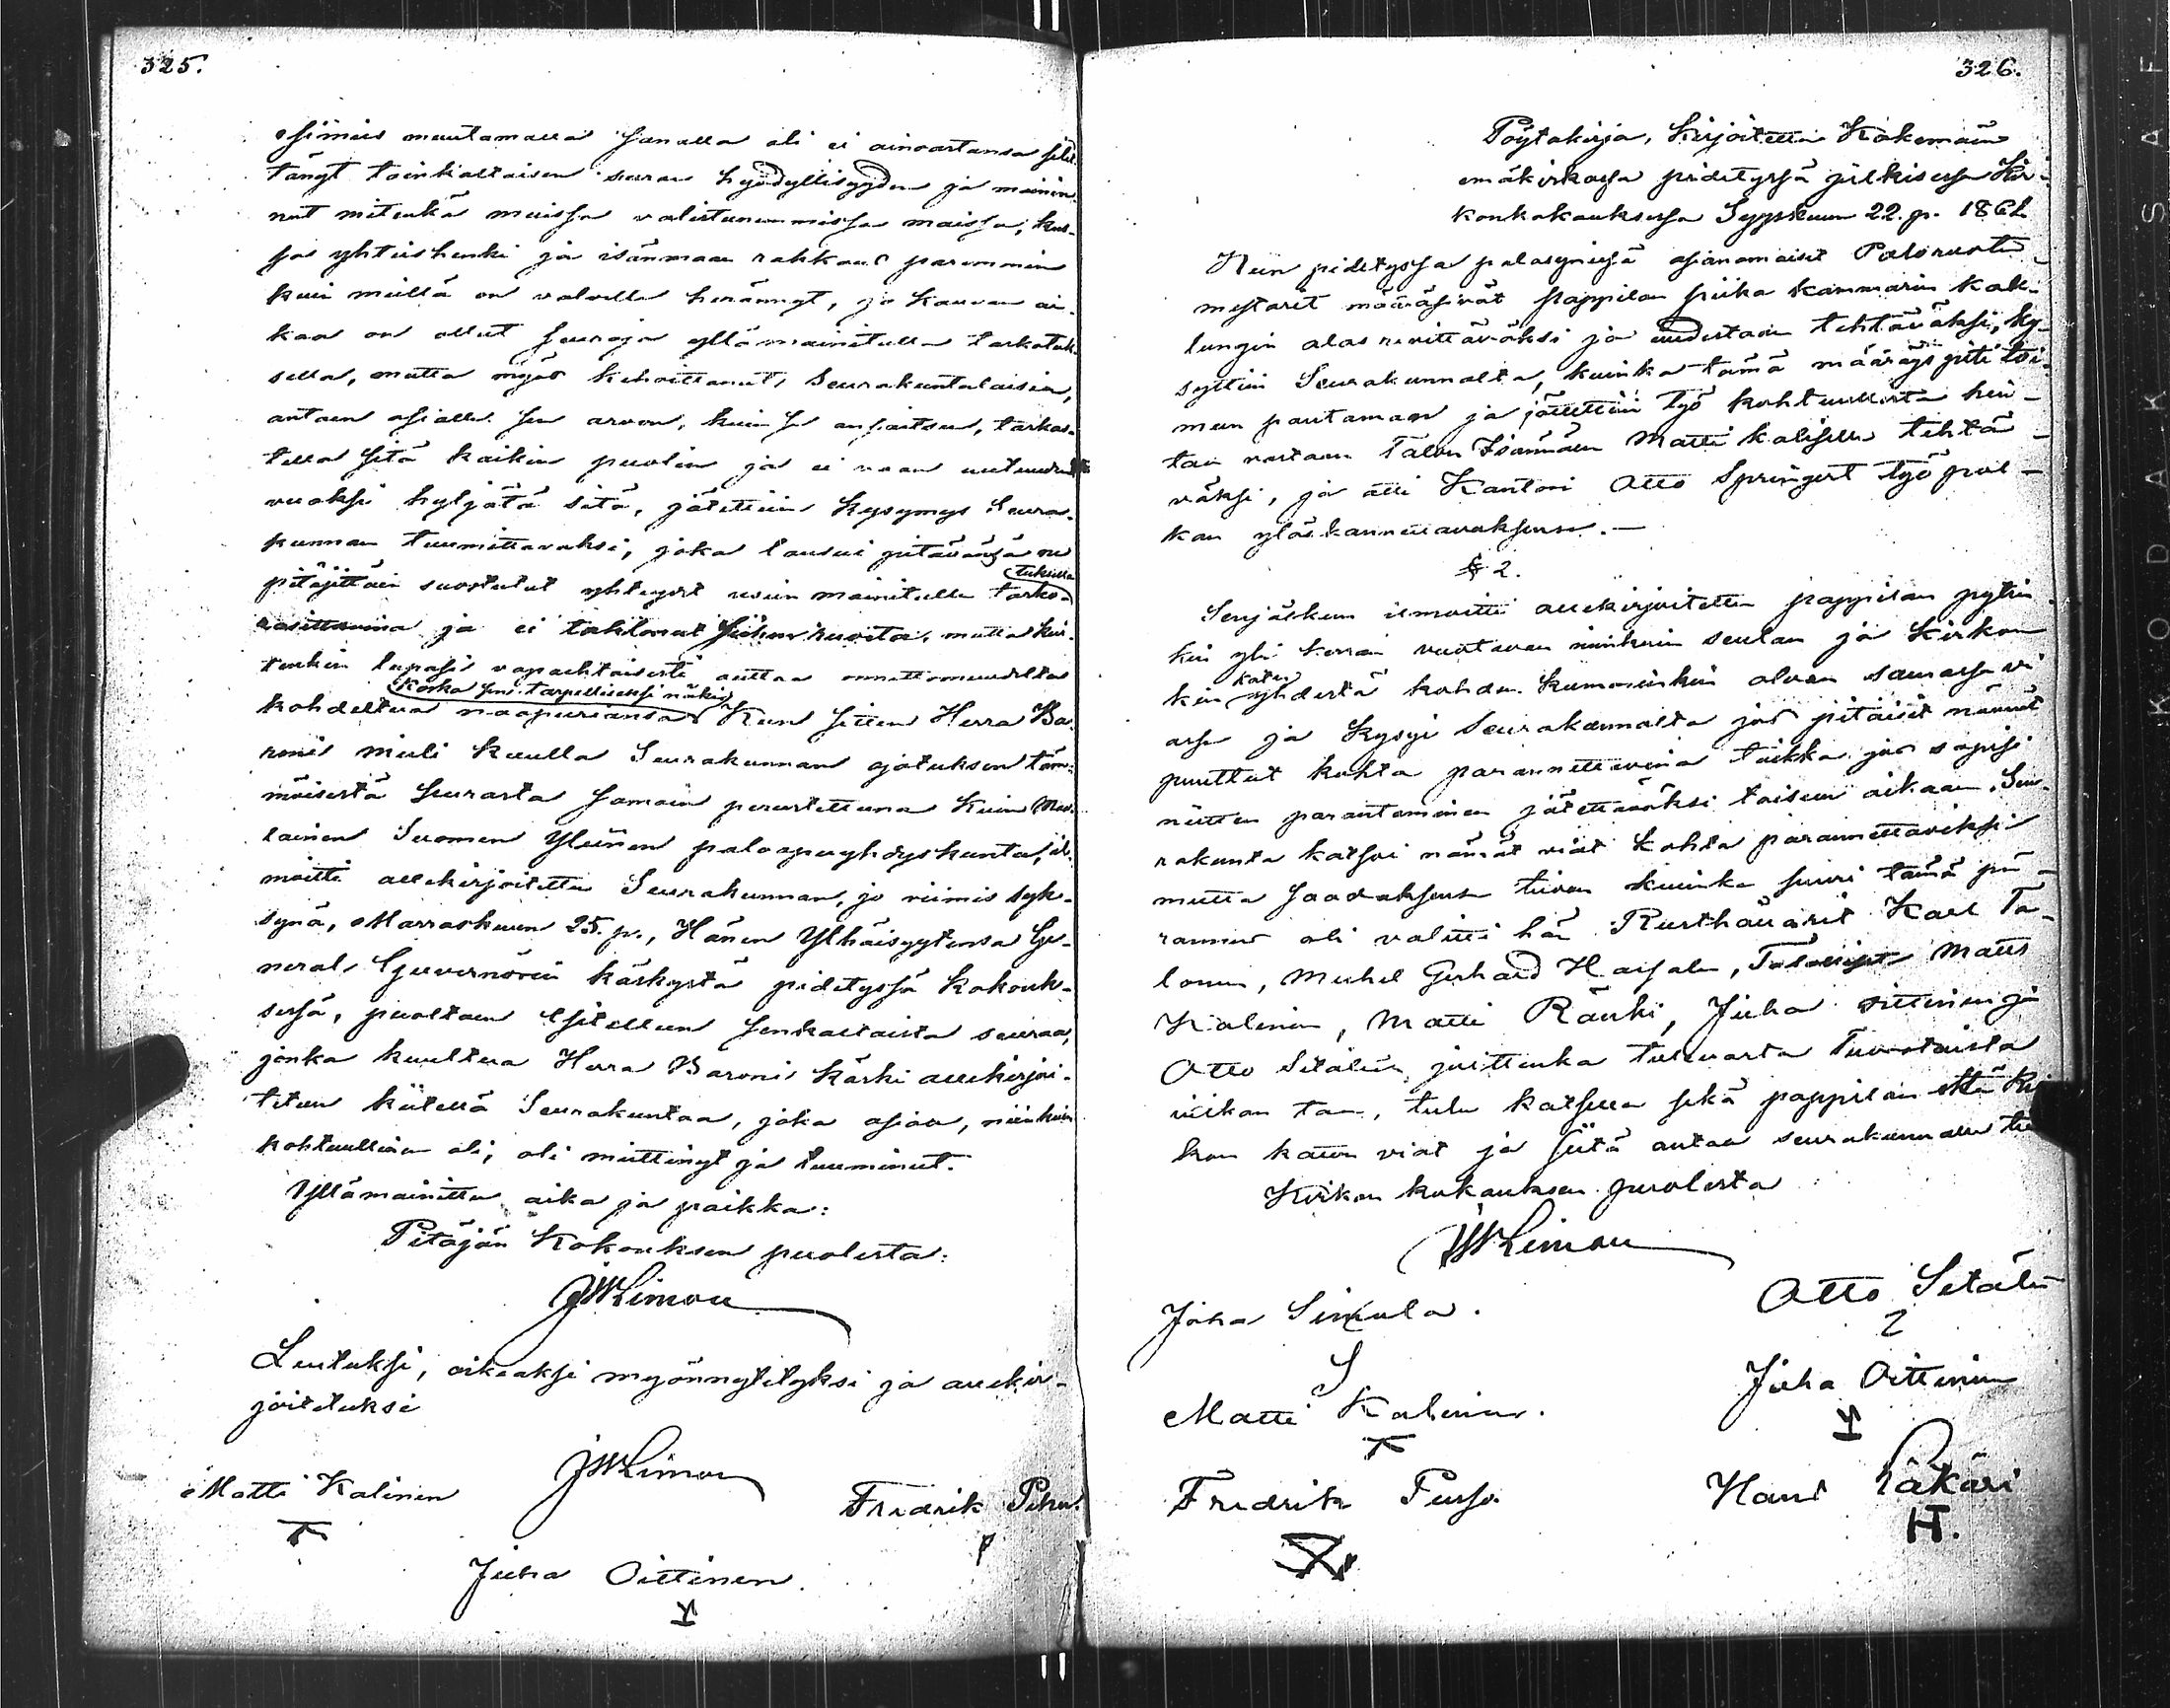 325.
muutamalla sanalla oli ei ainoastansa selit-
tänyt toinkaltaisen seuran hyödyllisyyden ja mainin-
nut mitenkä muissa valistuneemmissa maissa, kus-
sa yhteishenki ja isänmaan rakkaus paremmin
kuin meillä on valveella herännyt, jo kauvan ai-
kaa on ollut seuroja yllämainitulla tarkotuk-
sella, mutta myös kehoittanut Seurakuntalaisia,
antaen asialle sen arvon, kuin se ansaitsee, tarkas-
tella sitä kaikin puolin ja ei vaan uutuuden
vuoksi hyljätä sitä, jätettiin kysymys Seura-
kunnan tuumittavaksi, joka lausui pitävänsä ne
pitäjittäin suostutut yhteyset usein mainitulla tarko-
tuksella
rasittavina ja ei tahtonut siihen suosta, mutta kui-
tenkin lupasi vapaehtoisesti auttaa onnettomuudelta
koska sen tarpelliseksi näkis
kohdeltua naapuriansa Kun sitten Herra Ba-
roni mieli kuulla Seurakunnan ajatuksen täm-
möisestä Seurasta samoin perustettuna kuin Maa-
lainen Suomen Yleinen paloapuyhdyskunta, il-
moitti allekirjoitettu Seurakunnan, jo viimis syk-
synä, Marraskuun 25. p., Hänen Ylhäisyytensä Ge-
neral Guvernörin käskystä pidetyssä kokouk-
sessa, puoltaen esitelleen senkaltaista seuraa,
jonka kuultua Herra Baroni käski allekirjoi-
tetun kiitellä Seurakuntaa, joka asiaa, niinkuin
kohtuullinen oli, oli miettinyt ja tuuminut.
Yllämainittu aika ja paikka:
Pitäjän Kokouksen puolesta:
JWLimon
Luetuksi, oikeaksi myönnytetyksi ja allekir-
joitetuksi
JWLimon
Matti Kalinen
Fredrik
Juha Oittinen.
326.
Pöytäkirja, Kirjoitettu Kokemäen
emäkirkossa pidetyssä julkisessa Kir-
konkokouksessa Syyskuun 22. p. 1862
Kun pidetyssä palosynissä asianomaiset Paloruotu-
mestarit määräsivät pappilan piika kammarin kak-
lungin alas revittäväksi ja uudestaan tehtäväksi, ky-
syttiin Seurakunnalta, kuinka tämä määräys piti toi-
meen pantaman ja jätettiin työ kohtuullista hin-
taa vastaan Talon Isännän Matti Kaliselle tehtä-
väksi, ja otti Kantori Otto Springert työ pal-
kan ylöskannettavaksensa.—
§ 2.
Senjälkeen ilmoitti allekirjoitettu pappilan pytin-
kin yli kerran vuotavan niinkuin seulan ja Kirkon
katon
kin yhdestä kohden kumminkin olvan samassa vi-
assa ja kysyi Seurakunnalta jos pitäisit nämät
puuttut kohta parannettavina taikka jos sopisi
niitten parantaminen jätettäväksi toiseen aikaan. Seu-
rakunta katsoi nämät viat kohta parannettaviksi
mutta saadaksensa tiedon kuinka suuri tämä pa-
rannus oli valitti hän Rusthållarit Karl Ta-
lonen, Mickel Gerhard Harjala, Talolliset Matts
Kalinen, Matti Ränki, Juha Oittinen ja
Otto Setälin, joittenka tulevasta Tuorstaista
viikon taa, tulee katsella sekä pappilan että Kir-
kon katon viat ja siitä antaa seurakunnalle tie
Kirkon kokouksen puolesta
JWLimon
Juha Sinkula.
Otto Setälin
Matti Kalinen.
Juha Oittinen
Fredrik
Hans Päkäri
HT.
KODAK SAF